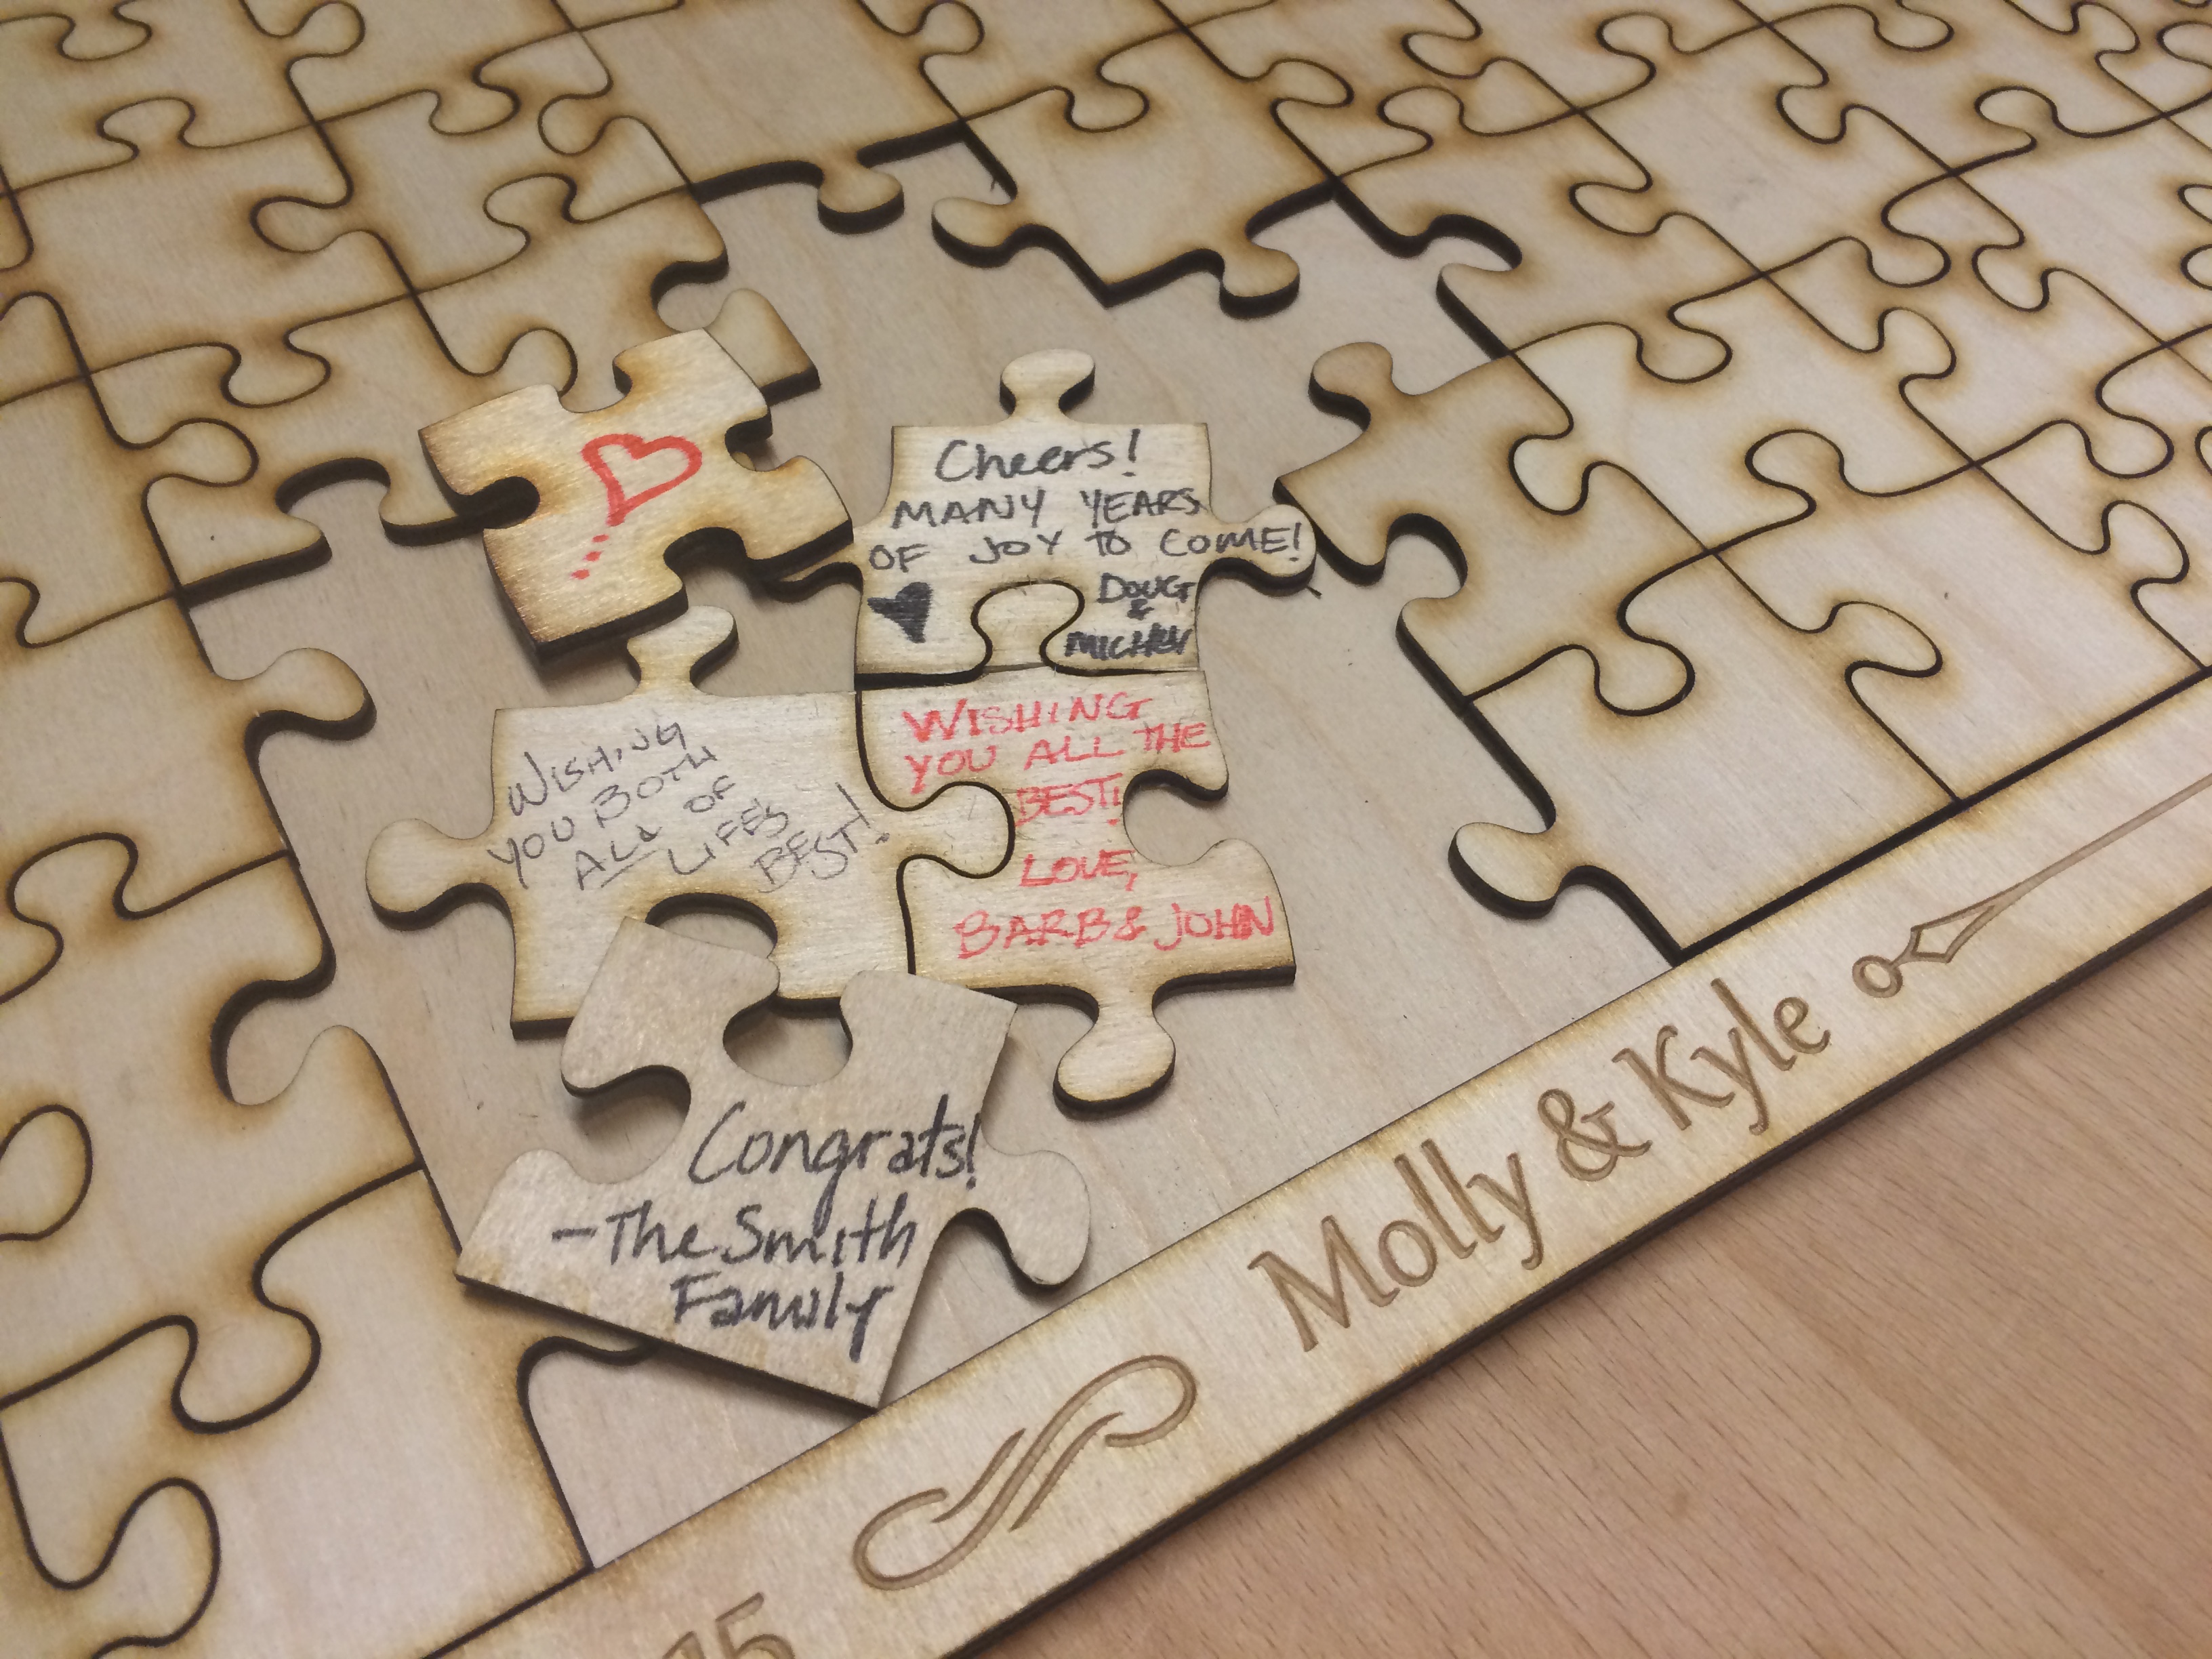 Cheers!
MANY YEARS
OF JOY TO COME!
DOUG
&
WISHING
YOU BOTH
ALL OF
LIFE'S
BEST!
WISHING
YOU ALL THE
BEST!
LOVE,
BARB & JOHN
Congrats!
- The Smith
Family
Molly & Kyle
15